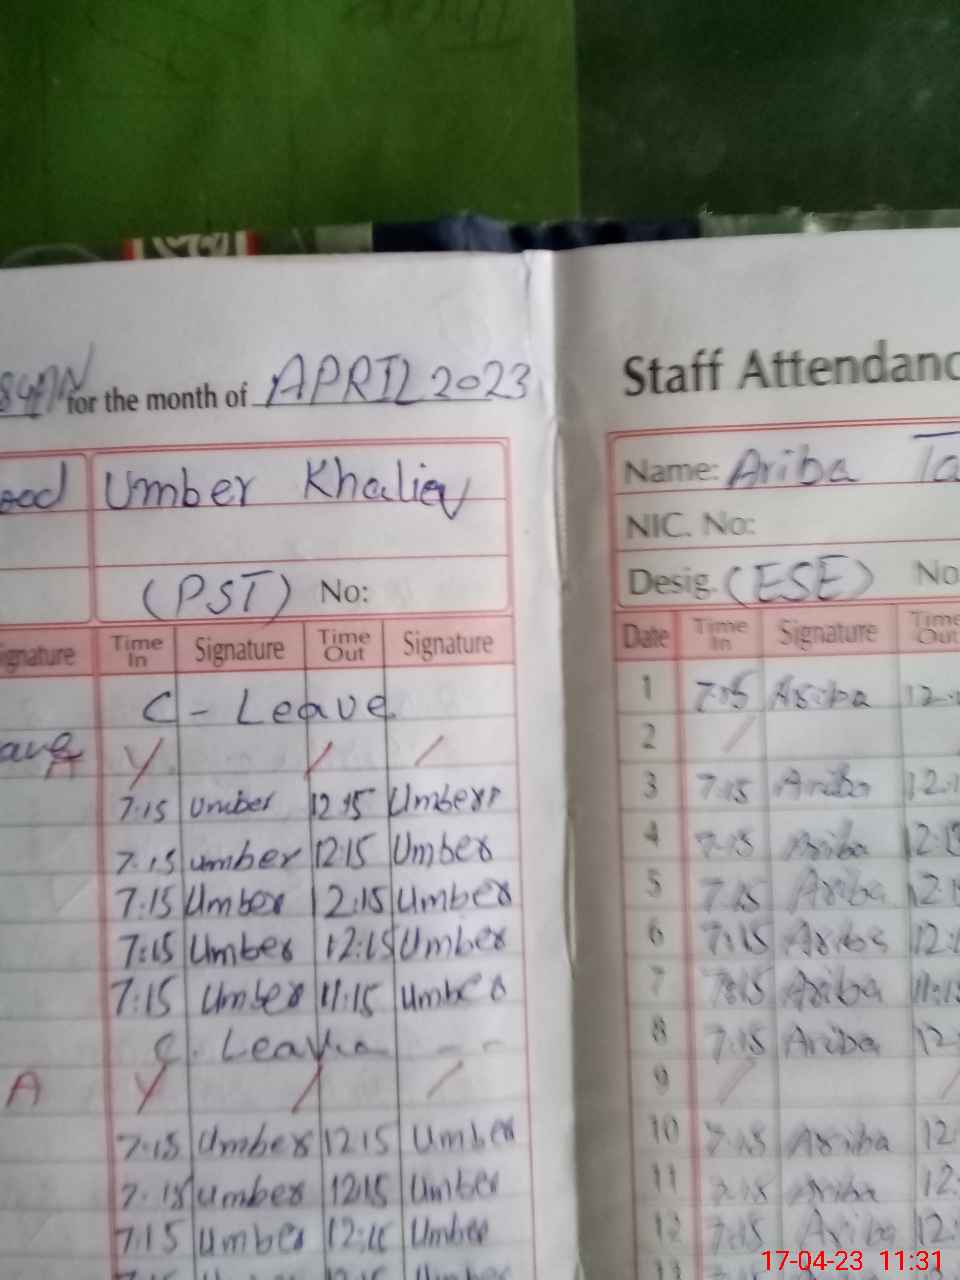 for the month of APRIL 2023
Umber Khalieq
(PST) No:
Signature Time In Signature Time Out Signature
C - Leave
7:15 Umber 12:15 Umber
7:15 Umber 12:15 Umber
7:15 Umber 12:15 Umber
7:15 Umber 12:15 Umber
7:15 Umber 11:15 Umber
C. Leave
A
7:15 Umber 12:15 Umber
7:15 Umber 12:15 Umber
7:15 Umber 12:15 Umber
Staff Attendanc
Name: Ariba
NIC. No:
Desig. (ESE) No
Date Time In Signature Time Out
1 7:15 Ariba 12
2
3 7:15 Ariba 12:1
4 7:15 Ariba 12:15
5 7:15 Ariba 12:1
6 7:15 Ariba 12:
7 7:15 Ariba 11:15
8 7:15 Ariba 12
9
10 7:15 Ariba 12
11 7:15 Ariba 12
12 7:15 Ariba 12
13
17-04-23 11:31